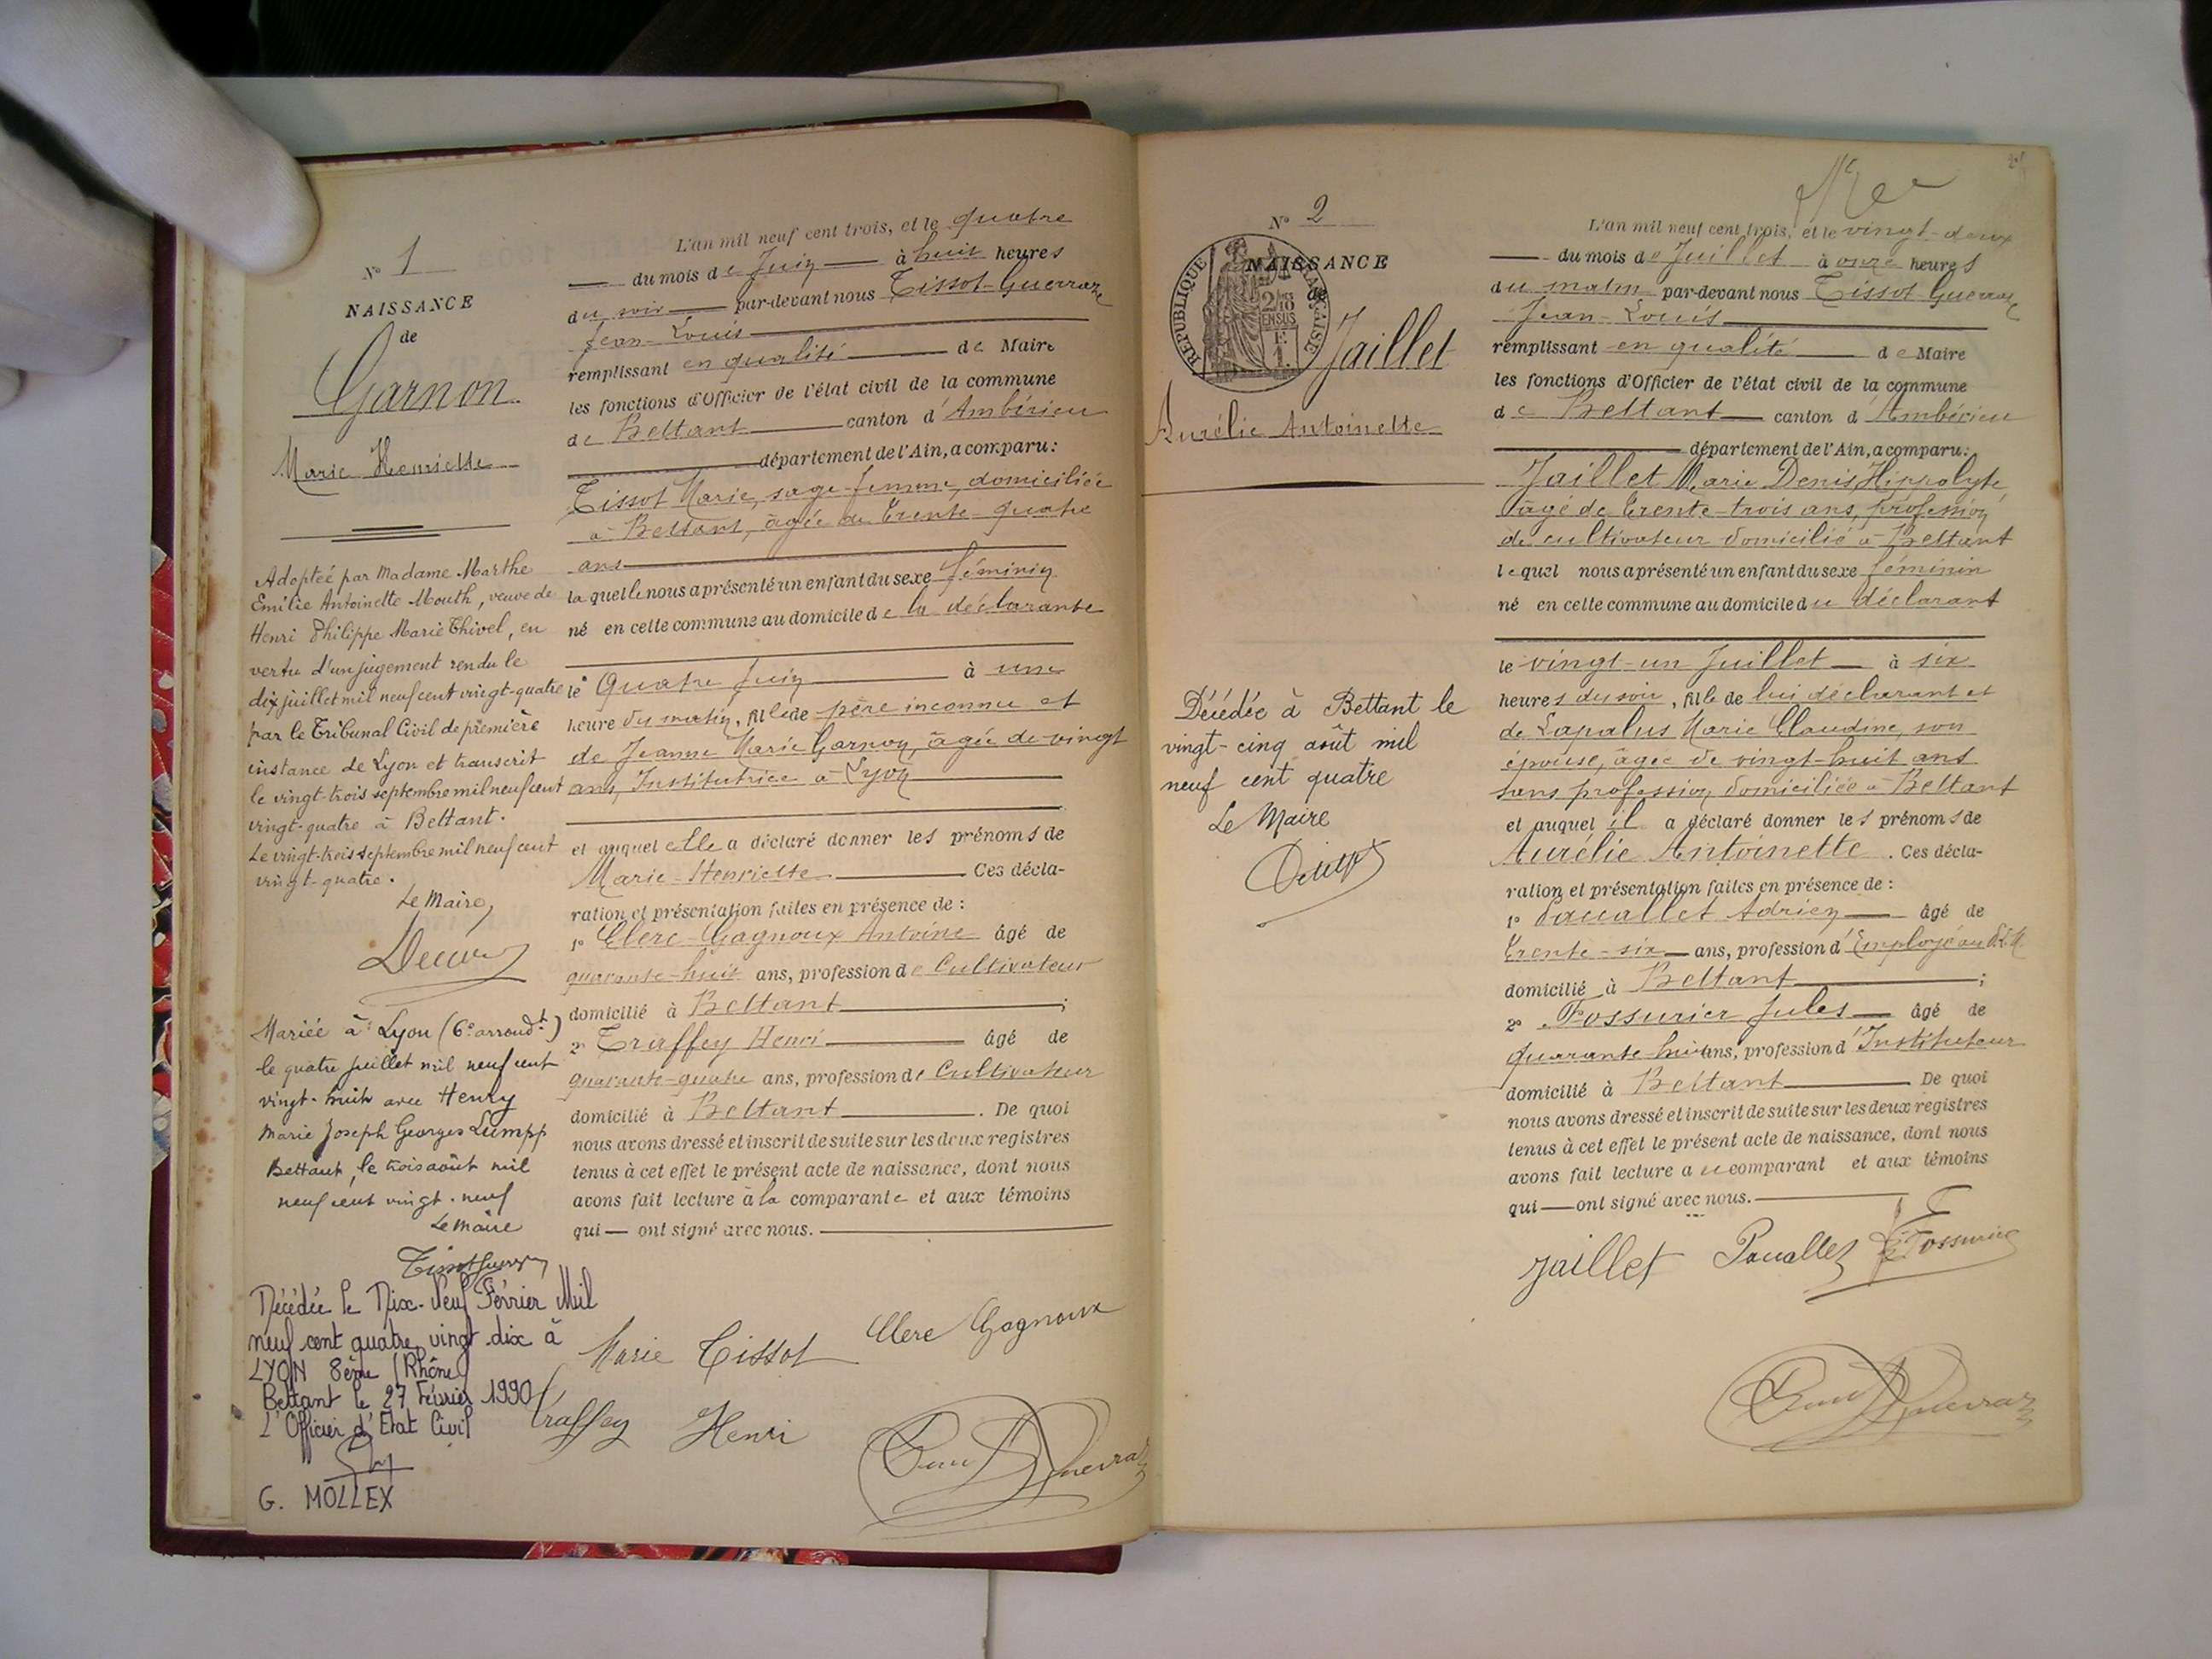 N° 1
NAISSANCE
de
Garnon
Marie Henriette
Adoptée par Madame Marthe
Emilie Antoinette Mouth, veuve de
Henri Philippe Marie Thivel, en
vertu d'un jugement rendu le
dix juillet mil neuf cent vingt-quatre
par le Tribunal Civil de première
instance de Lyon et transcrit
le vingt-trois septembre mil neuf cent
vingt-quatre à Bettant.
Le vingt-trois septembre mil neuf cent
vingt-quatre.
Le Maire,
Mariée à Lyon (6e arrondt)
le quatre juillet mil neuf cent
vingt-huit avec Henry
Marie Joseph Georges Lumpp
Bettant, le trois août mil
neuf cent vingt-neuf
Le Maire
Décédée le Dix-Neuf Février Mil
neuf cent quatre vingt dix à
LYON 8ème (Rhône)
Bettant le 27 Février 1990
L'Officier d'Etat Civil
G. MOLLEX
L'an mil neuf cent trois, et le quatre
du mois de Juin à huit heures
du soir par-devant nous Tissot-Guerraz
Jean-Louis
remplissant en qualité de Maire
les fonctions d'Officier de l'état civil de la commune
de Bettant canton d'Ambérieu
département de l'Ain, a comparu:
Tissot Marie, sage-femme, domiciliée
à Bettant, âgée de trente-quatre
ans
laquelle nous a présenté un enfant du sexe féminin
né en cette commune au domicile de la déclarante
le quatre Juin à une
heure du matin, fille de père inconnu et
de Jeanne Marie Garnon, âgée de vingt
ans, Institutrice à Lyon
et auquel elle a déclaré donner les prénoms de
Marie-Henriette Ces décla-
ration et présentation faites en présence de :
1° Clerc-Gagnoux Antoine âgé de
quarante-huit ans, profession de Cultivateur
domicilié à Bettant ;
2° Truffey Henri âgé de
quarante-quatre ans, profession de Cultivateur
domicilié à Bettant . De quoi
nous avons dressé et inscrit de suite sur les deux registres
tenus à cet effet le présent acte de naissance, dont nous
avons fait lecture à la comparante et aux témoins
qui — ont signé avec nous.
Marie Tissot Clerc Gagnoux
Truffey Henri
N° 2
NAISSANCE
de
RÉPUBLIQUE FRANÇAISE
Jaillet
Aurélie Antoinette
Décédée à Bettant le
vingt-cinq août mil
neuf cent quatre
Le Maire
L'an mil neuf cent trois, et le vingt-deux
du mois de Juillet à onze heures
du matin par-devant nous Tissot-Guerraz
Jean-Louis
remplissant en qualité de Maire
les fonctions d'Officier de l'état civil de la commune
de Bettant canton d'Ambérieu
département de l'Ain, a comparu:
Jaillet Marie Denis Hippolyte
âgé de trente-trois ans, profession
de cultivateur domicilié à Bettant
lequel nous a présenté un enfant du sexe féminin
né en cette commune au domicile du déclarant
le vingt-un Juillet à six
heures du soir, fille de lui déclarant et
de Lapalus Marie Claudine, son
épouse, âgée de vingt-huit ans
sans profession, domiciliée à Bettant
et auquel il a déclaré donner les prénoms de
Aurélie Antoinette . Ces décla-
ration et présentation faites en présence de :
1° Adrien âgé de
trente-six ans, profession d'Employé au
domicilié à Bettant ;
2° Fossurier Jules âgé de
quarante-huit ans, profession d'Instituteur
domicilié à Bettant De quoi
nous avons dressé et inscrit de suite sur les deux registres
tenus à cet effet le présent acte de naissance, dont nous
avons fait lecture au comparant et aux témoins
qui — ont signé avec nous.
Jaillet Fossurier